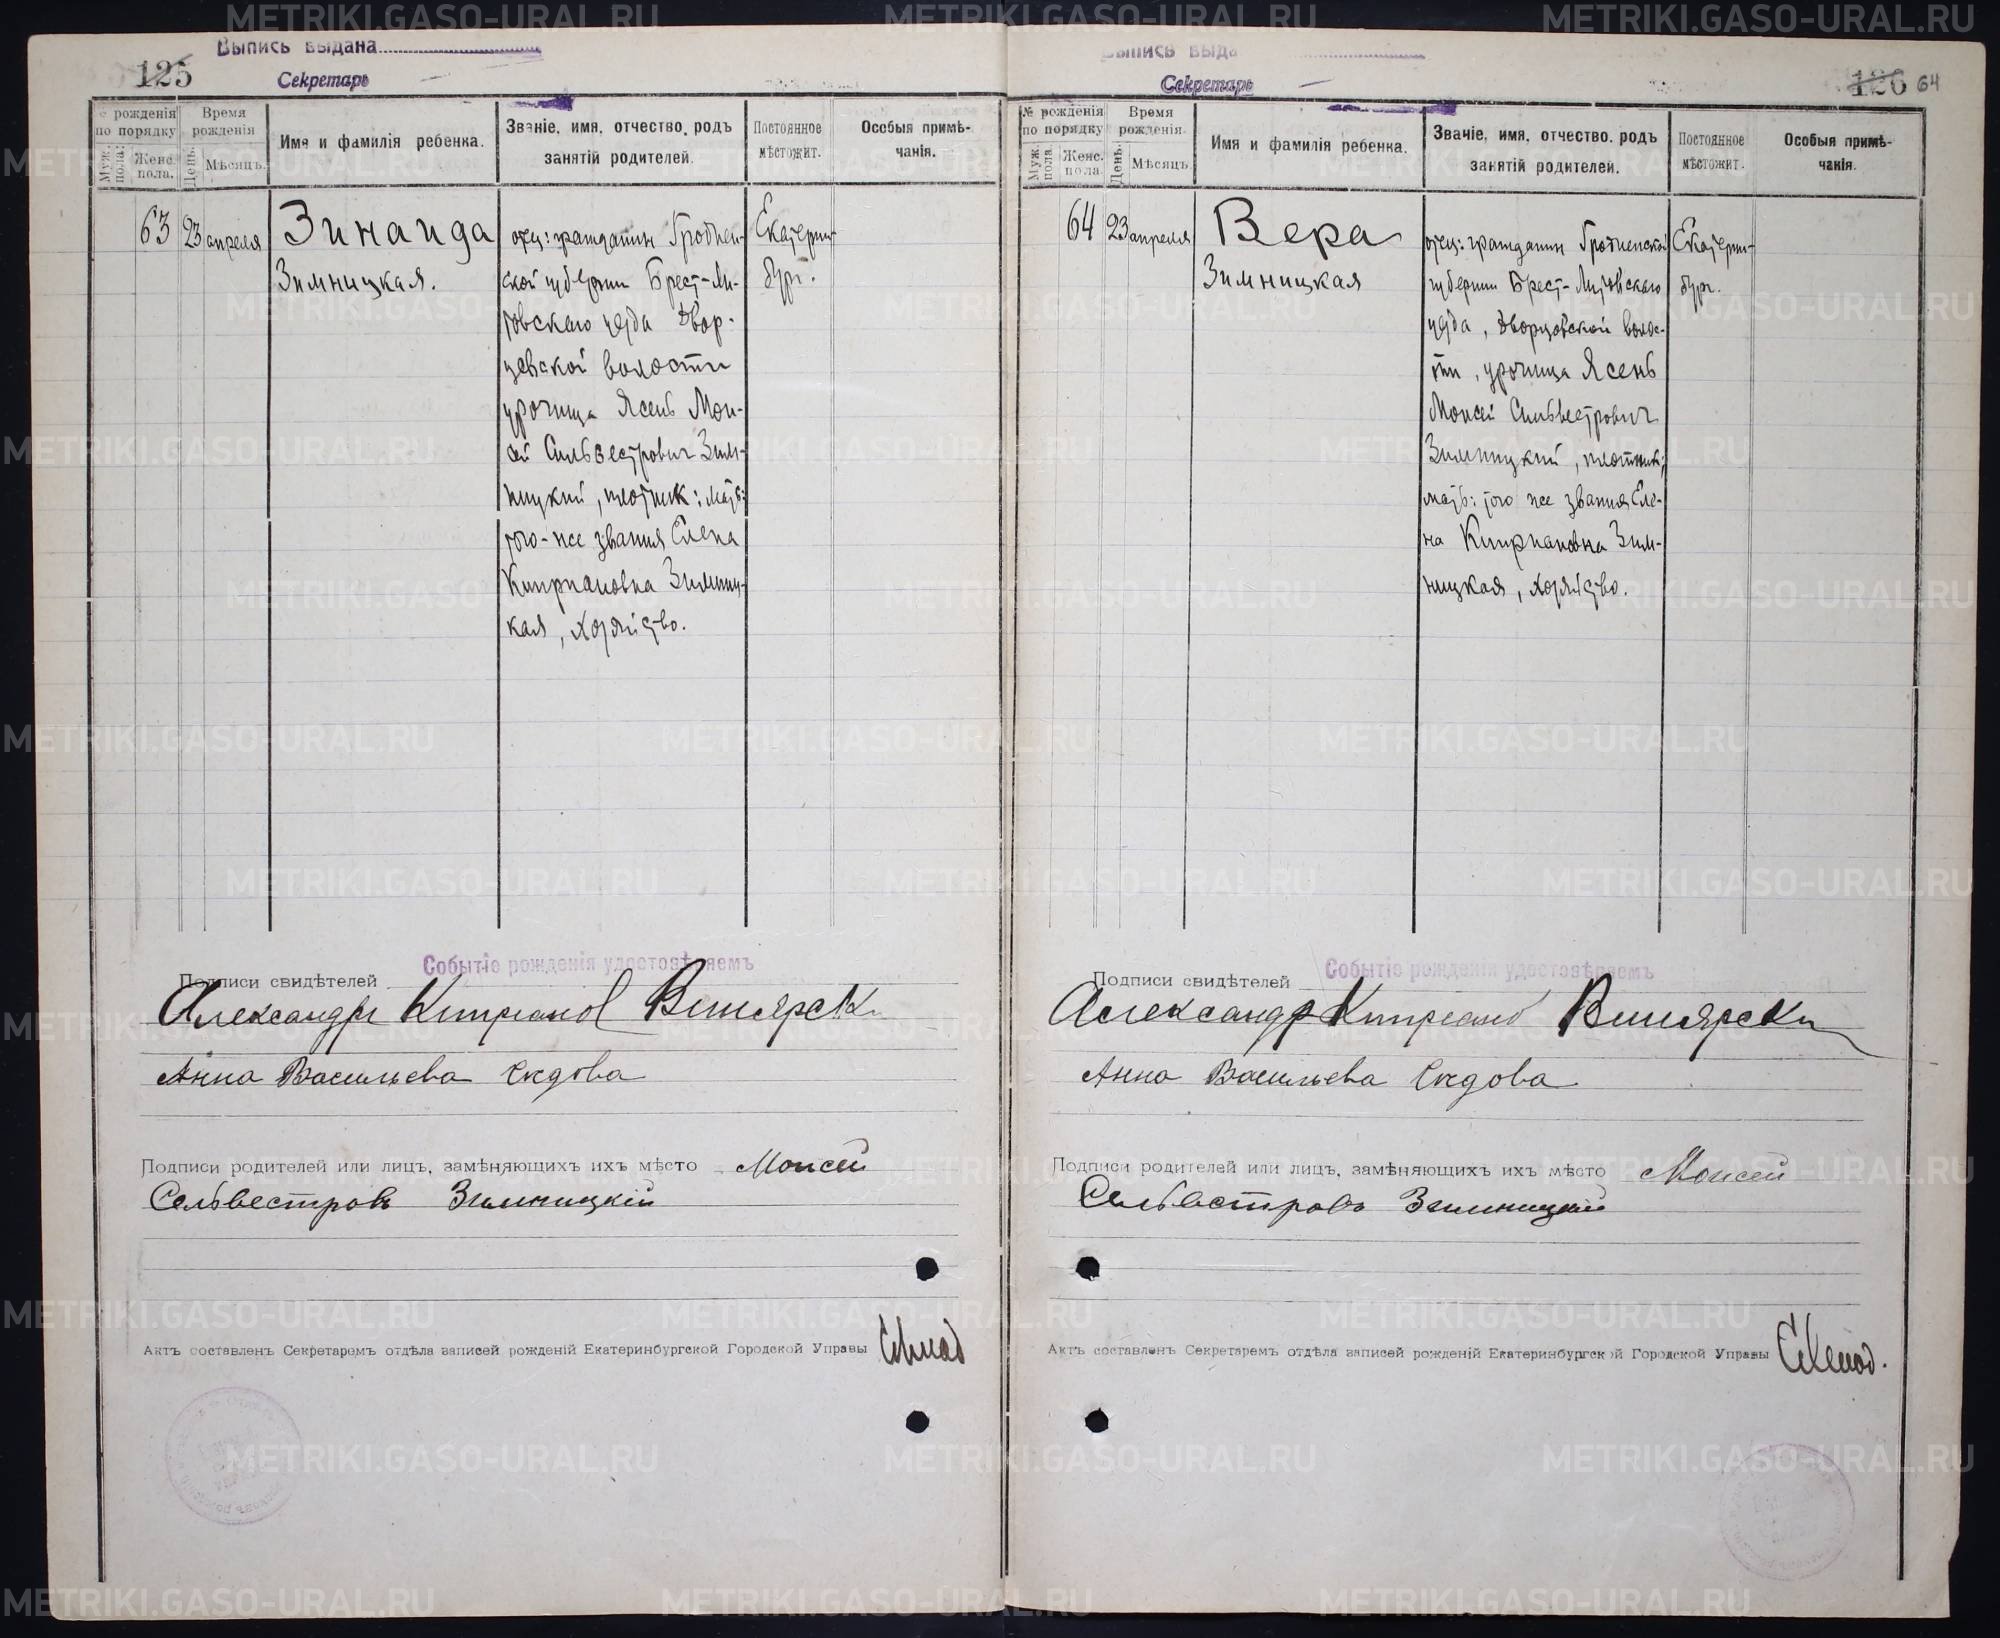 125
Выпись выдана
Секретарь
№ рожденія по порядку
Муж. пола.
Женс. пола.
Время рожденія
День.
Мѣсяцъ.
Имя и фамилія ребенка.
Званіе, имя, отчество, родъ занятій родителей.
Постоянное мѣстожит.
Особыя примѣчанія.
63
23
апреля
Зинаида
Зимницкая.
отец: гражданин Гроднен-
ской губернии Брест-Ли-
товскаго уезда Двор-
цевской волости
урочища Ясень Мои-
сей Сильвестрович Зим-
ницкий, плотник; мать:
того-же звания Елена
Киприановна Зимниц-
кая, хозяйство.
Екатерин-
бург.
Событіе рожденія удостовѣряемъ
Подписи свидѣтелей
Александръ Киприанов
Анна Васильева
Подписи родителей или лицъ, замѣняющихъ ихъ мѣсто Моисей
Сельвестровъ Зимницкій
Актъ составленъ Секретаремъ отдѣла записей рожденій Екатеринбургской Городской Управы
126 64
Выпись выда
Секретарь
№ рожденія по порядку
Муж. пола
Женс. пола.
Время рожденія.
День.
Мѣсяцъ
Имя и фамилія ребенка.
Званіе, имя, отчество, родъ занятій родителей.
Постоянное мѣстожит.
Особыя примѣчанія.
64
23
апреля
Вера
Зимницкая
отец: гражданин Гродненской
губернии Брест-Литовскаго
уезда, Дворцовской волос-
ти, урочища Ясень
Моисей Сильвестрович
Зимницкий, плотник;
мать: того же звания Еле-
на Киприановна Зим-
ницкая, хозяйство.
Екатерин-
бург.
Событіе рожденія удостовѣряемъ
Подписи свидѣтелей
Александр Киприано
Анна Васильева
Подписи родителей или лицъ, замѣняющихъ ихъ мѣсто Моисей
Сельвестровъ Зимницкий
Актъ составленъ Секретаремъ отдѣла записей рожденій Екатеринбургской Городской Управы
METRIKI.GASO-URAL.RU